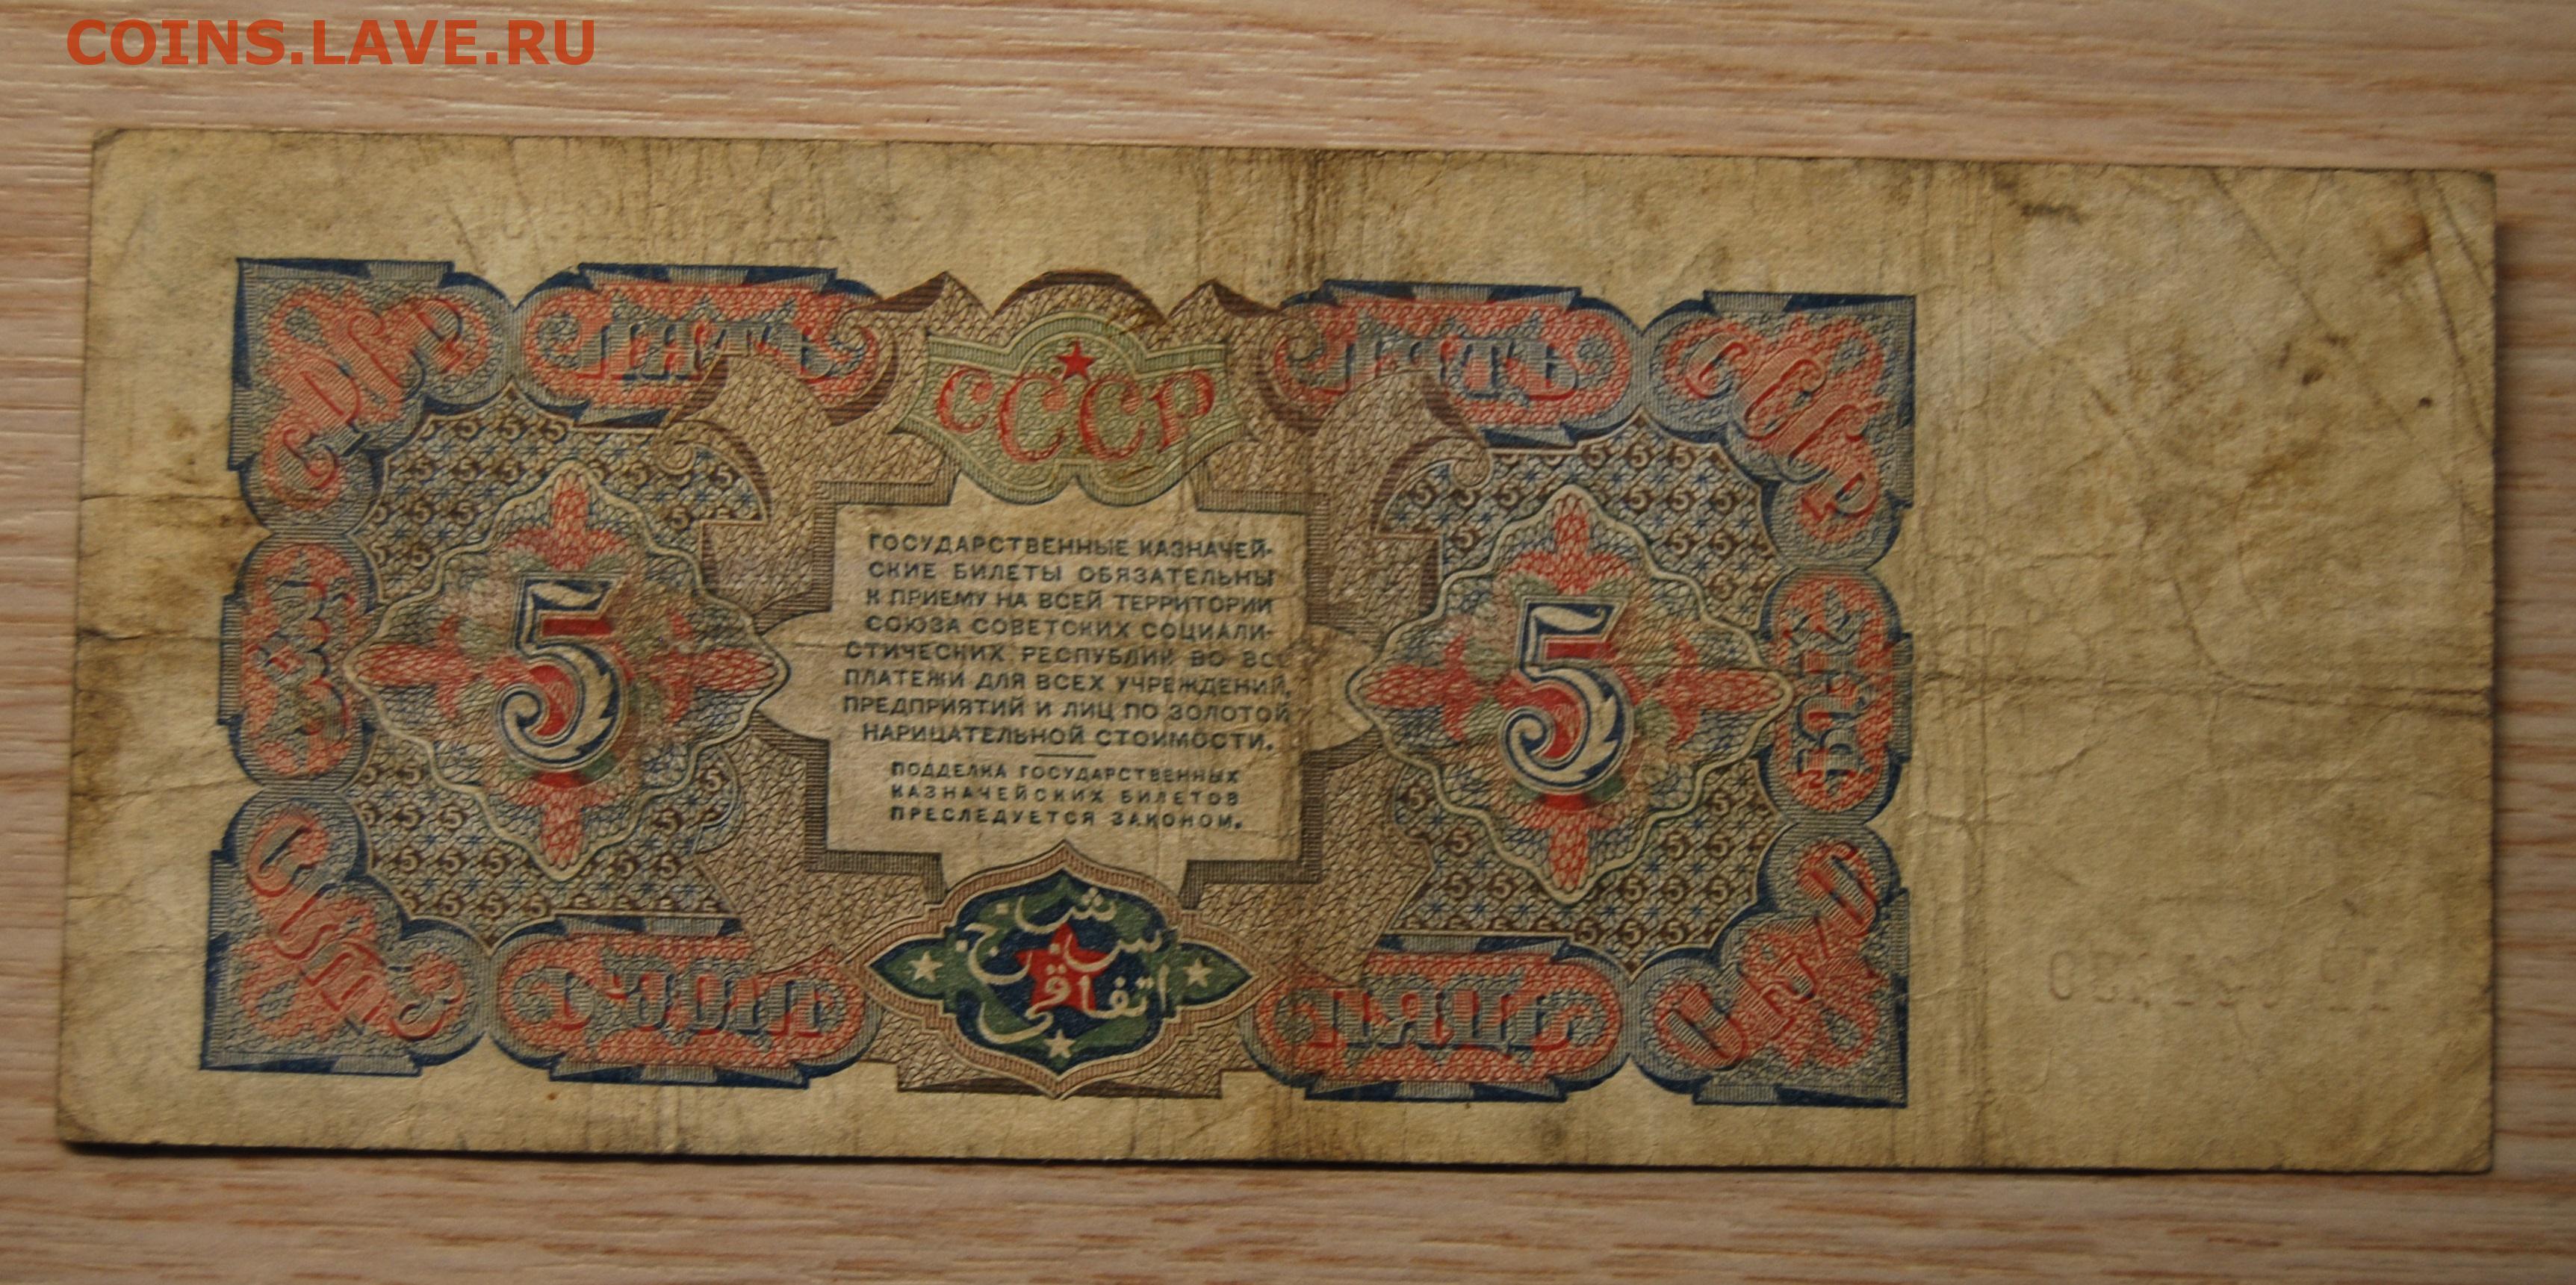 COINS.LAVE.RU
ПЯТЬ ПЯТЬ
С.С.С.Р.
СССР
5 5
ГОСУДАРСТВЕННЫЕ КАЗНАЧЕЙ-
СКИЕ БИЛЕТЫ ОБЯЗАТЕЛЬНЫ
К ПРИЕМУ НА ВСЕЙ ТЕРРИТОРИИ
СОЮЗА СОВЕТСКИХ СОЦИАЛИ-
СТИЧЕСКИХ РЕСПУБЛИК ВО ВСЕ
ПЛАТЕЖИ ДЛЯ ВСЕХ УЧРЕЖДЕНИЙ,
ПРЕДПРИЯТИЙ И ЛИЦ ПО ЗОЛОТОЙ
НАРИЦАТЕЛЬНОЙ СТОИМОСТИ.
ПОДДЕЛКА ГОСУДАРСТВЕННЫХ
КАЗНАЧЕЙСКИХ БИЛЕТОВ
ПРЕСЛЕДУЕТСЯ ЗАКОНОМ.
ПЯЦЬ